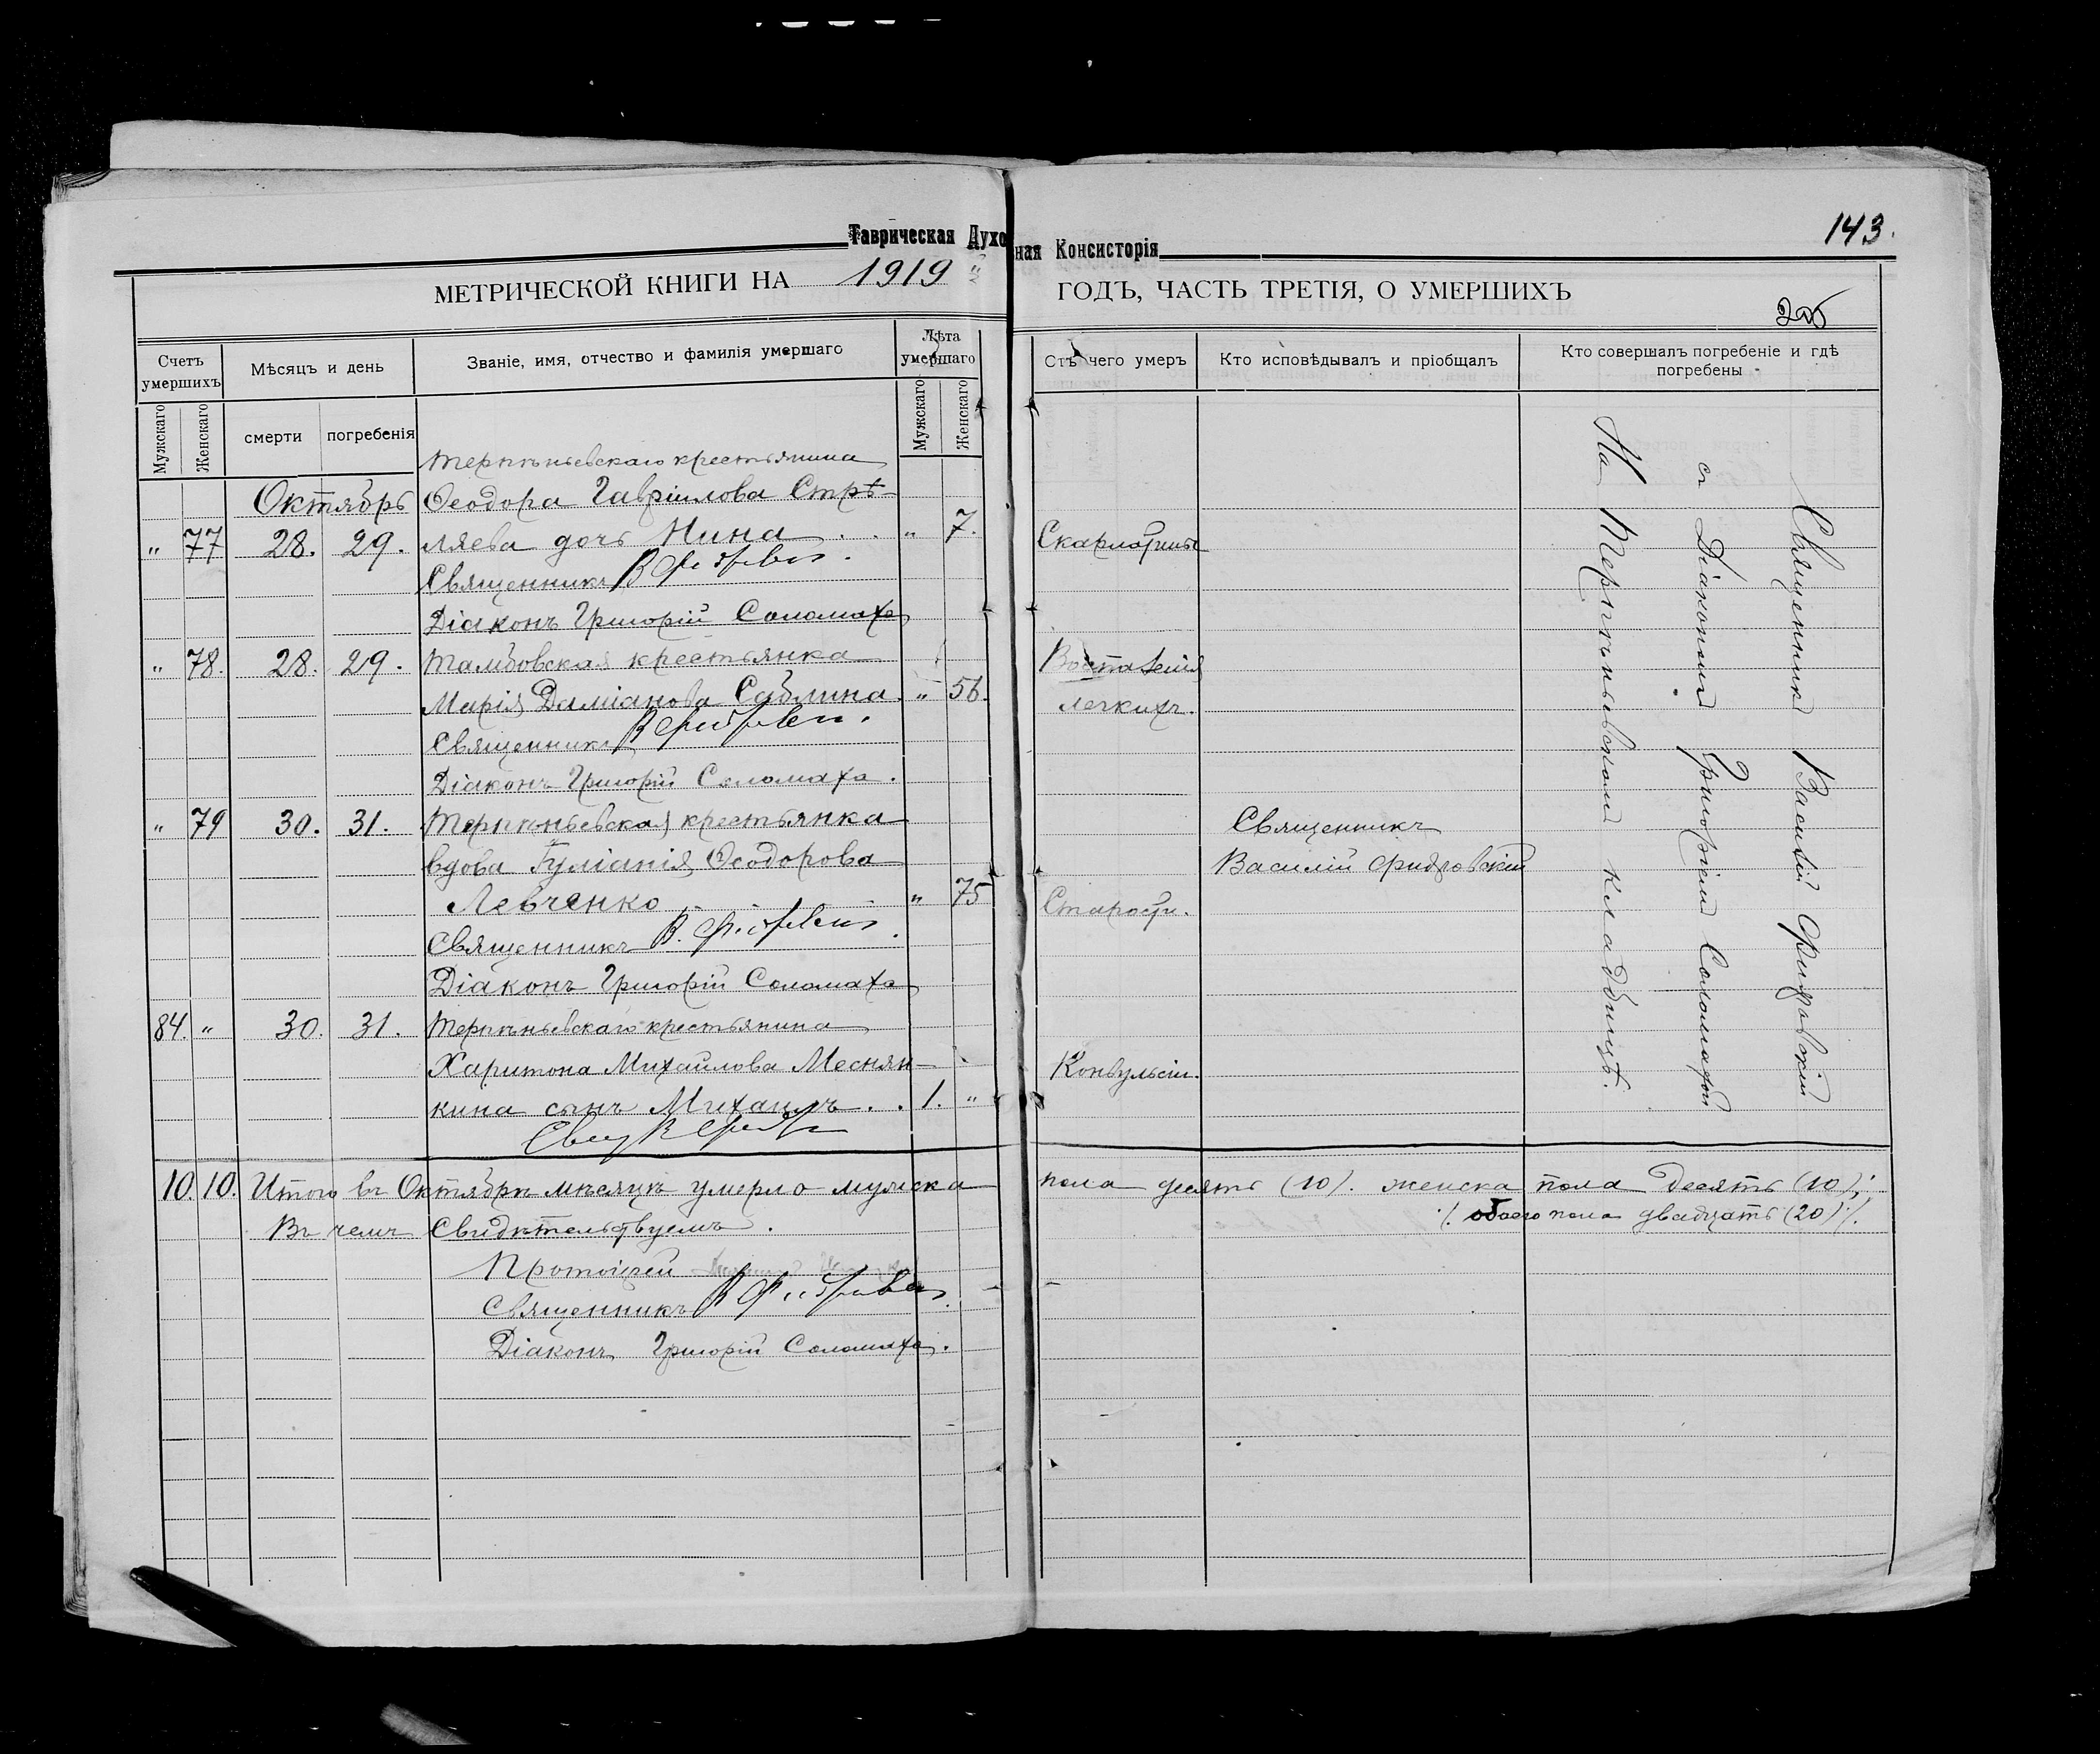 Таврическая Духовная Консисторія
143.
МЕТРИЧЕСКОЙ КНИГИ НА 1919 ГОДЪ, ЧАСТЬ ТРЕТІЯ, О УМЕРШИХЪ
Счетъ умершихъ
Мѣсяцъ и день
Званіе, имя, отчество и фамилія умершаго
Лѣта умершаго
Мужскаго
Женскаго
смерти
погребенія
Мужскаго
Женскаго
Отъ чего умеръ
Кто исповѣдывалъ и пріобщалъ
Кто совершалъ погребеніе и гдѣ погребены
Терпѣньевскаго крестьянина
Октябрь Ѳеодора Гавріилова Стрѣ-
" 77 28. 29. ляева дочь Нина . . " 7. Скарлатины
Священникъ В
Діаконъ Григорій Соломаха
" 78. 28. 29. Тамбовская крестьянка Воспаленія
Марія Даміанова Саблина. " 56. легкихъ.
Священникъ В
Діаконъ Григорій Соломаха.
" 79 30. 31. Терпѣньевская крестьянка Священникъ
вдова Іуліанія Ѳеодорова Василій Фидровскій
Левченко " 75 Старости.
Священникъ В.
Діаконъ Григорій Соломаха
84. " 30. 31. Терпѣньевскаго крестьянина
Харитона Михайлова Меснян- Конвульсіи.
кина сынъ Михаилъ . . 1. "
Свящ В
Священникъ Василій Фидровскій
съ Діакономъ Григоріемъ Соломахой
На Терпѣньевскомъ кладбищѣ.
10. 10. Итого въ Октябрѣ мѣсяцѣ умерло мужска пола десять (10). женска пола десять (10);
обоего пола двадцать (20)
Въ чемъ Свидѣтельствуемъ.
Протоіерей
Священникъ В
Діаконъ Григорій Соломаха.